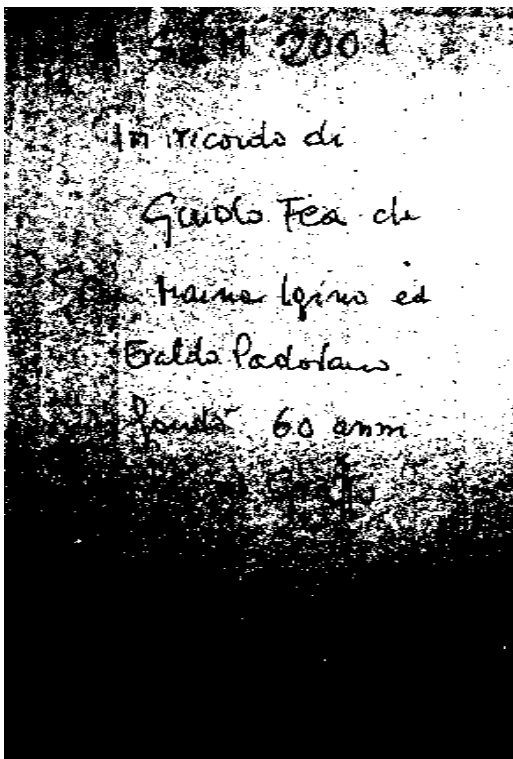 2001
In ricordo di
Guido Fea che
con Maina Igino ed
Eraldo Padovano
fondò 60 anni